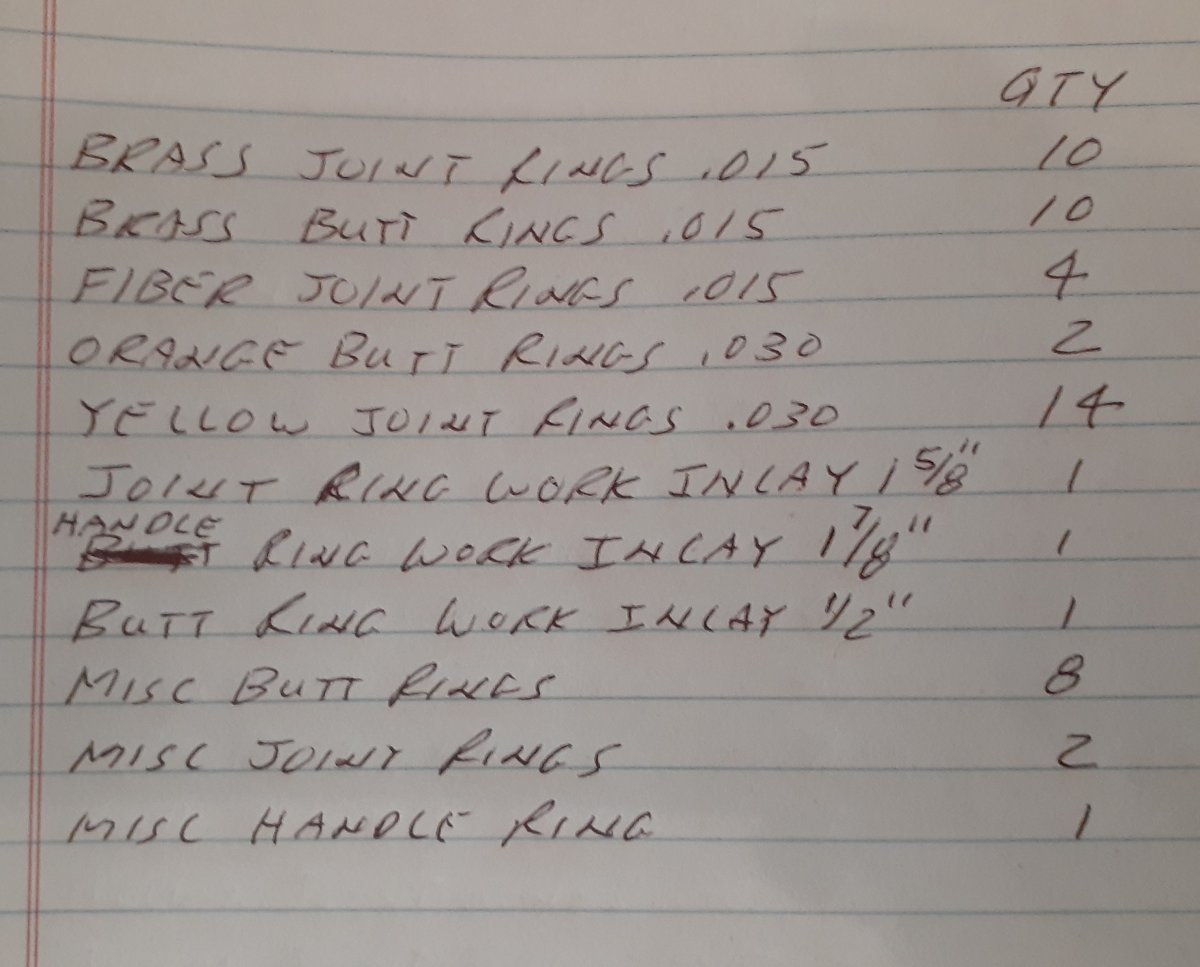 QTY
BRASS JOINT RINGS .015 10
BRASS BUTT RINGS .015 10
FIBER JOINT RINGS .015 4
ORANGE BUTT RINGS .030 2
YELLOW JOINT RINGS .030 14
JOINT RING WORK INLAY 1 5/8" 1
HANDLE
RING WORK INLAY 1 7/8" 1
BUTT RING WORK INLAY 1/2" 1
MISC BUTT RINGS 8
MISC JOINT RINGS 2
MISC HANDLE RING 1